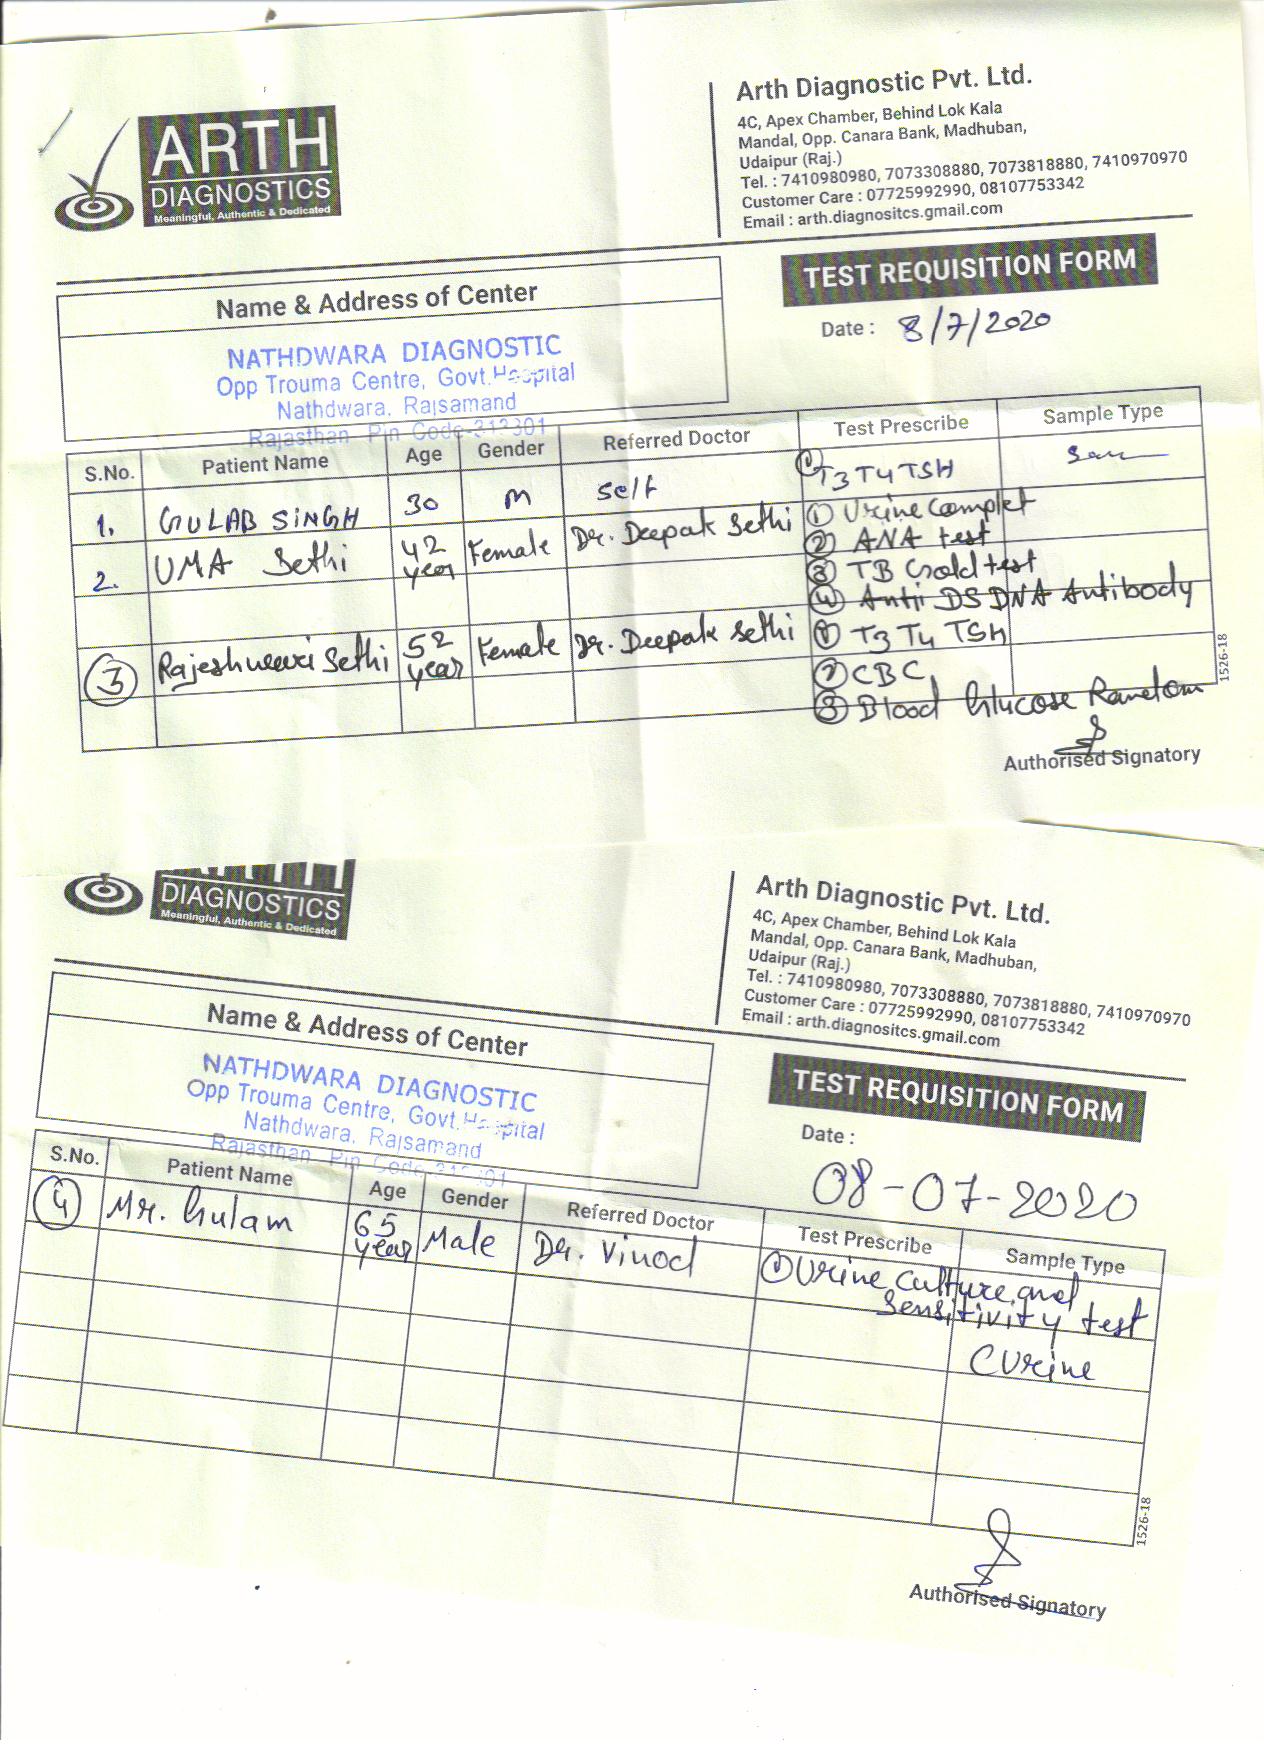 ARTH
DIAGNOSTICS
Meaningful, Authentic & Dedicated
Arth Diagnostic Pvt. Ltd.
4C, Apex Chamber, Behind Lok Kala
Mandal, Opp. Canara Bank, Madhuban,
Udaipur (Raj.)
Tel. : 7410980980, 7073308880, 7073818880, 7410970970
Customer Care : 07725992990, 08107753342
Email : arth.diagnositcs.gmail.com
TEST REQUISITION FORM
Date : 8/7/2020
Name & Address of Center
NATHDWARA DIAGNOSTIC
Opp Trouma Centre, Govt. Hospital
Nathdwara, Rajsamand
Rajasthan Pin Code-313301
S.No. Patient Name Age Gender Referred Doctor Test Prescribe Sample Type
1. GULAB SINGH 30 M Self ① T3 T4 TSH
2. UMA Sethi 42 year Female Dr. Deepak Sethi ① Urine Complet
② ANA test
③ TB Gold test
④ Antii DS DNA Antibody
③ Rajeshwari Sethi 52 year Female Dr. Deepak Sethi ① T3 T4 TSH
② CBC
③ Blood Glucose Random
Authorised Signatory
1526-18
DIAGNOSTICS
Meaningful, Authentic & Dedicated
Arth Diagnostic Pvt. Ltd.
4C, Apex Chamber, Behind Lok Kala
Mandal, Opp. Canara Bank, Madhuban,
Udaipur (Raj.)
Tel. : 7410980980, 7073308880, 7073818880, 7410970970
Customer Care : 07725992990, 08107753342
Email : arth.diagnositcs.gmail.com
TEST REQUISITION FORM
Date :
08-07-2020
Name & Address of Center
NATHDWARA DIAGNOSTIC
Opp Trouma Centre, Govt. Hospital
Nathdwara, Rajsamand
Rajasthan Pin Code
S.No. Patient Name Age Gender Referred Doctor Test Prescribe Sample Type
④ Mr. Gulam 65 year Male Dr. Vinod ① Urine Culture and
Sensitivity test
(Urine
1526-18
Authorised Signatory